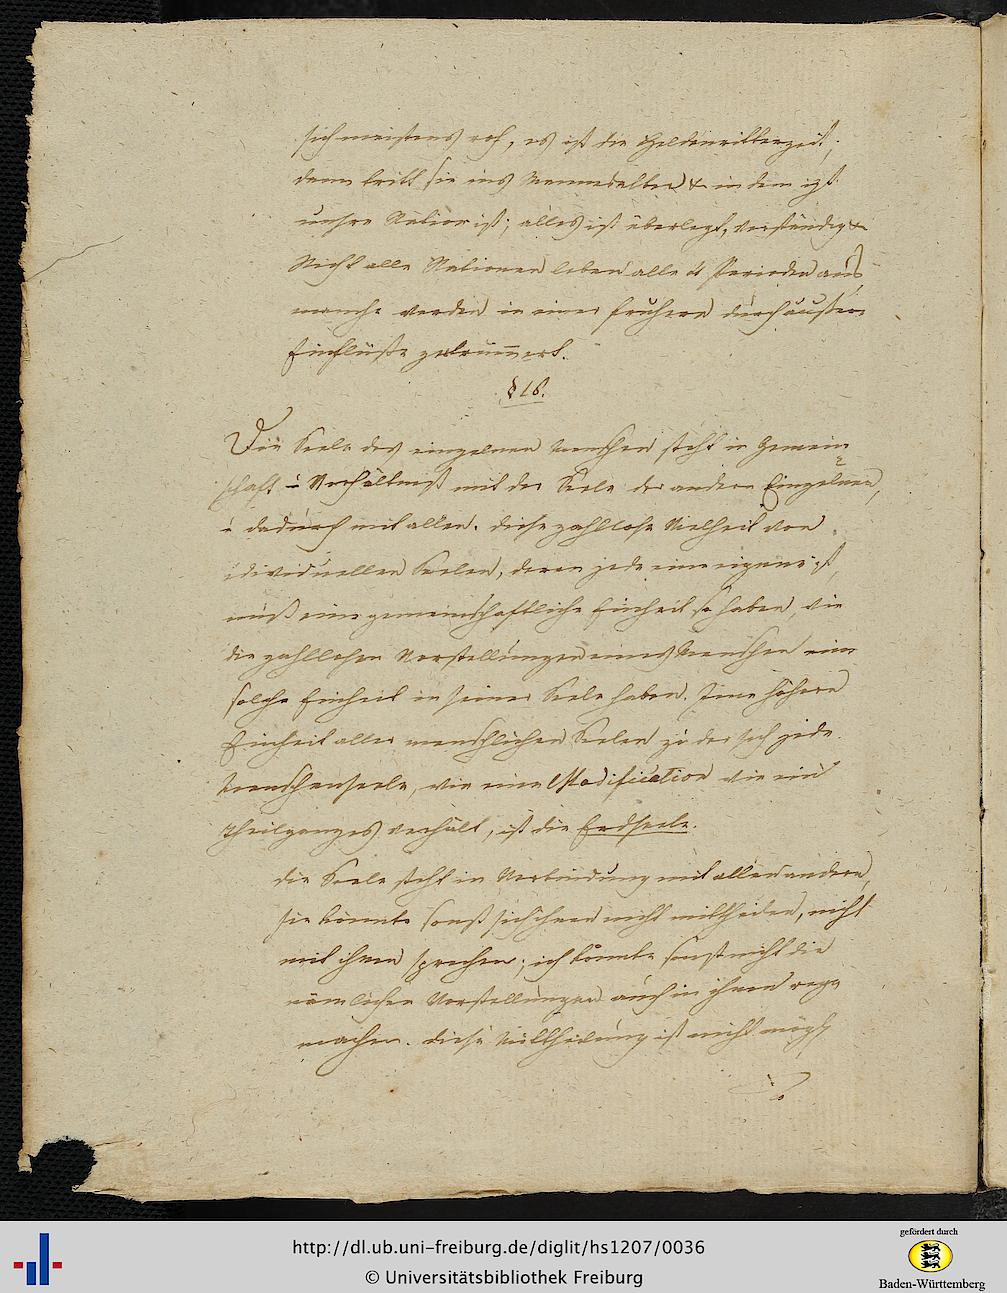 sich meistens roh, es ist die Heldenritterzeit,
dann tritt sie ins Mannesalter & in dem izt
unsre Nation ist; alles ist überlegt, verständig &
Nicht alle Nationen leben alle 4 Perioden aus
manche werden in einer frühern durch äußere
Einflüße zertrümmert.
§ 18.
Die Seele des einzelnen Menschen steht in Gemein
schaft u Verhältniß mit der Seele der andern Einzelnen,
u dadurch mit allen. Diese zahllose Vielheit von
individuellen Seelen, deren jede eine eigene ist,
muß eine gemeinschaftliche Einheit so haben, wie
die zahllosen Vorstellungen eines Menschen eine
solche Einheit in seiner Seele haben. Jene höhere
Einheit aller menschlichen Seelen zu der sich jede
Menschenseele, wie eine Modification wie ein
Theilganzes verhält, ist die Erdseele.
die Seele steht in Verbindung mit allen andern,
sie könnte sonst sich ihnen nicht mittheilen, nicht
mit ihnen sprechen; ich könnte sonst nicht die
nämlichen Vorstellungen auch in ihnen rege
machen. Diese Mittheilung ist nicht mögl
http://dl.ub.uni-freiburg.de/diglit/hs1207/0036
© Universitätsbibliothek Freiburg
gefördert durch
Baden-Württemberg